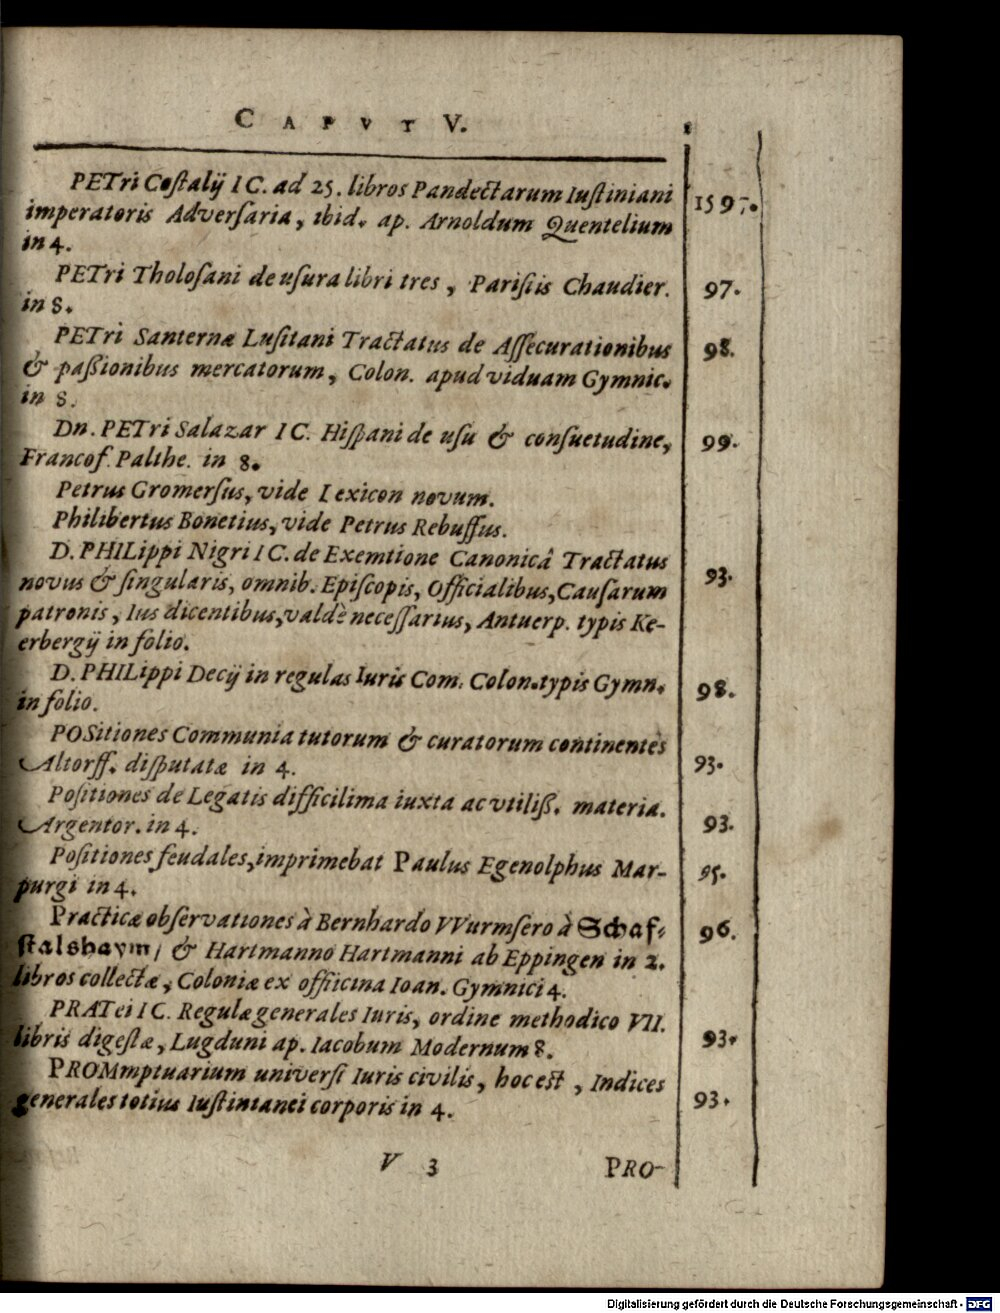 CAPVT V.
PETri Costalij IC. ad 25. libros Pandectarum Iustiniani 1597.
imperatoris Adversaria, ibid. ap. Arnoldum Quentelium
in 4.
PETri Tholosani de usura libri tres, Parisiis Chaudier. 97.
in 8.
PETri Santernæ Lusitani Tractatus de Assecurationibus 98.
& paßionibus mercatorum, Colon. apud viduam Gymnic.
in 8.
Dn. PETri Salazar IC. Hispani de usu & consuetudine, 99.
Francof. Palthe. in 8.
Petrus Gromersus, vide Lexicon novum.
Philibertus Bonetius, vide Petrus Rebuffus.
D. PHILippi Nigri IC. de Exemtione Canonicâ Tractatus 93.
novus & singularis, omnib. Episcopis, Officialibus, Causarum
patronis, Ius dicentibus, valdè necessarius, Antuerp. typis Ke-
erbergij in folio.
D. PHILippi Decij in regulas Iuris Com. Colon. typis Gymn. 98.
in folio.
POSitiones Communia tutorum & curatorum continentes
Altorff. disputatæ in 4. 93.
Positiones de Legatis difficilima iuxta ac vtiliß. materia. 93.
Argentor. in 4.
Positiones feudales, imprimebat Paulus Egenolphus Mar- 95.
purgi in 4.
Practicæ observationes à Bernhardo VVurmsero à Schaf- 96.
stalshaym/ & Hartmanno Hartmanni ab Eppingen in 2.
libros collectæ, Coloniæ ex officina Ioan. Gymnici 4.
PRATei IC. Regulæ generales Iuris, ordine methodico VII. 93.
libris digestæ, Lugduni ap. Iacobum Modernum 8.
PROMmptuarium universi Iuris civilis, hoc est, Indices 93.
generales totius Iustinianei corporis in 4.
V 3 PRO-
Digitalisierung gefördert durch die Deutsche Forschungsgemeinschaft - DFG